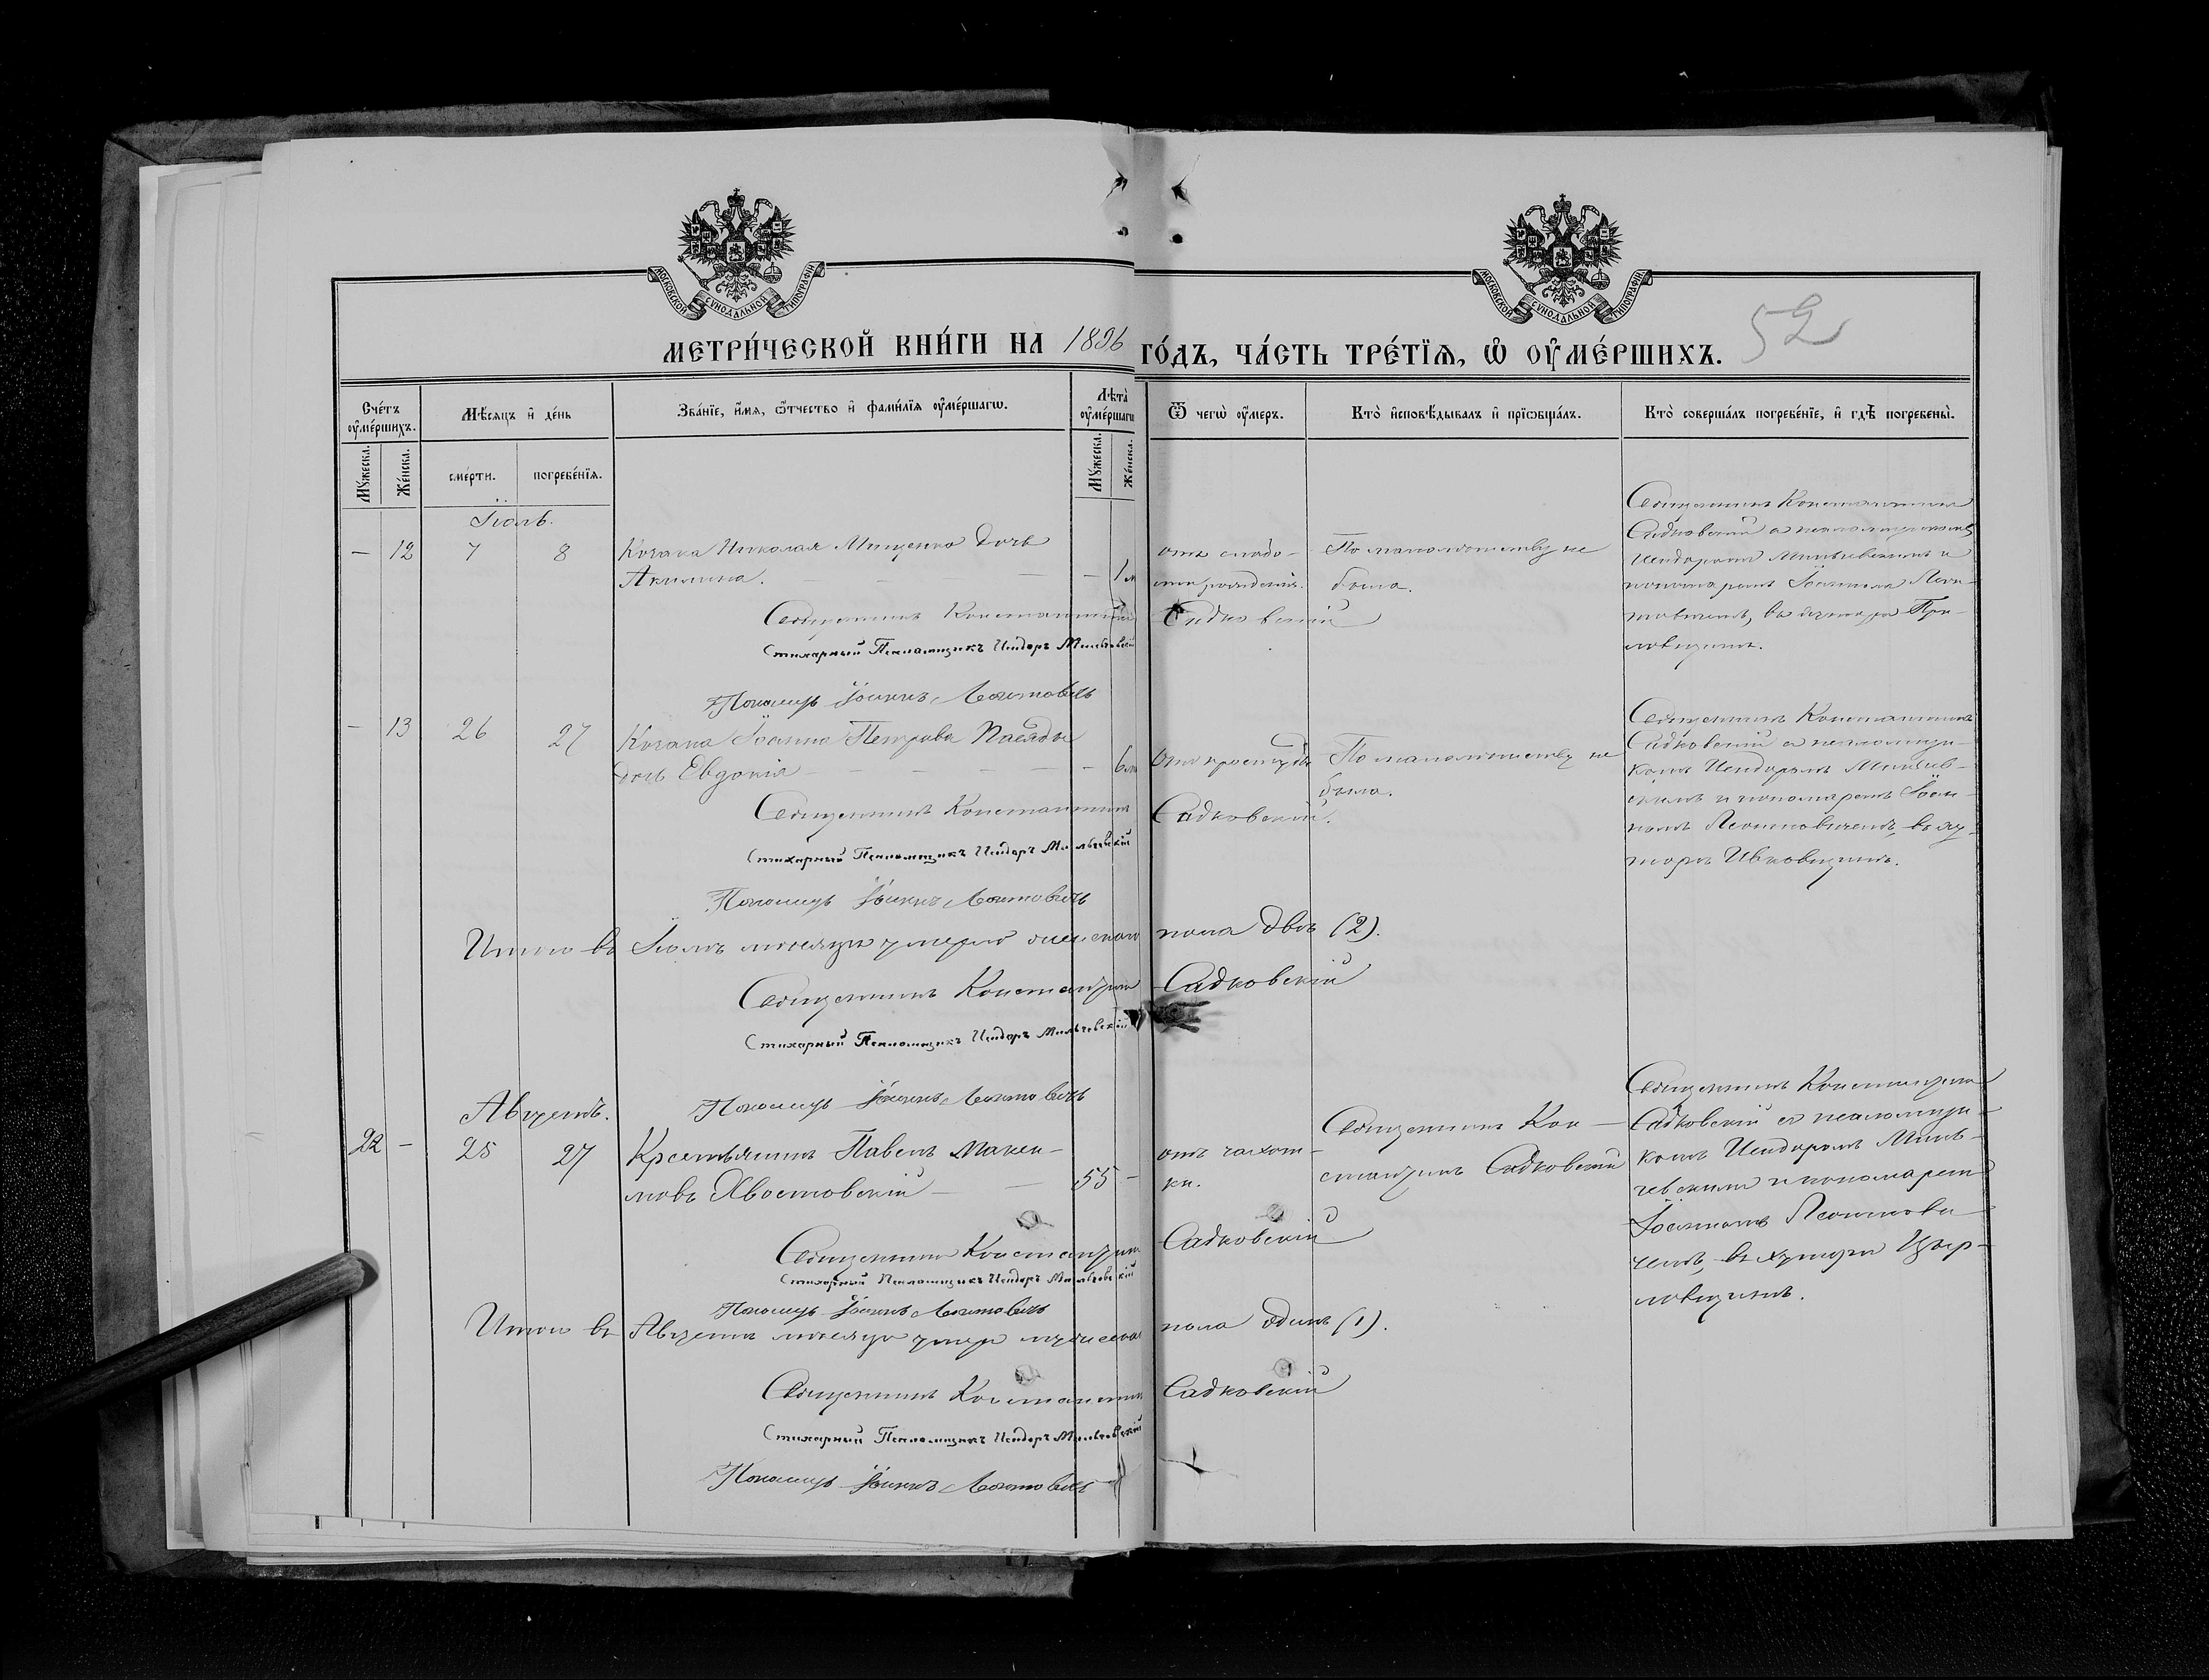 МОСКОВСКОЙ СУНОДАЛЬНОЙ ТИПОГРАФІИ
МОСКОВСКОЙ СУНОДАЛЬНОЙ ТИПОГРАФІИ
52
МЕТРИ́ЧЕСКОЙ КНИ́ГИ НА 1896 ГО́ДЪ, ЧА́СТЬ ТРЕ́ТЇѦ, Ѡ҆ ОУ҆МЕ́РШИХЪ.
Сче́тъ оу҆ме́ршихъ.
Мѣ́сѧцъ и҆ де́нь
Зва́нїе, и҆́мѧ, ѻ҆́тчество и҆ фами́лїѧ оу҆ме́ршагѡ.
Лѣ̑та̀ оу҆ме́ршагѡ
Ѿ чегѡ̀ оу҆́меръ.
Кто̀ и҆сповѣ́дывалъ и҆ прїѡбща́лъ.
Кто̀ соверша́лъ погребе́нїе, и҆ гдѣ̀ погребены̀.
Мꙋ́жеска.
Же́нска.
сме́рти.
погребе́нїѧ.
Мꙋ́жеска.
Же́нска.
Іюль.
— 12 7 8 Козака Николая Мищенко дочь
Акилина. — 1 м
отъ слабо-
сти рожденія.
По малолѣтству не
была.
Священникъ Константинъ
Садковскій съ псаломщикомъ
Исидоромъ Мильчевскимъ и
пономаремъ Іоанномъ Леон-
товичемъ, въ хуторѣ
Священникъ Константинъ Садковскій
Стихарный Псаломщикъ Исидоръ Мильчевскій
Пономарь Іоаннъ Леонтовичъ
— 13 26 27 Козака Іоанна Петрова
дочь Евдокія — 6
Отъ простуды
По малолѣтству не
была.
Священникъ Константинъ
Садковскій съ псаломщи-
комъ Исидоромъ Мильчев-
скимъ и пономаремъ Іоан-
номъ Леонтовичемъ, въ ху-
торѣ Ивковщинѣ.
Священникъ Константинъ Садковскій.
Стихарный Псаломщикъ Исидоръ Мильчевскій
Пономарь Іоаннъ Леонтовичъ
Итого въ Іюлѣ мѣсяцѣ умерло женскаго пола двѣ (2).
Священникъ Константинъ Садковскій
Стихарный Псаломщикъ Исидоръ Мильчевскій
Пономарь Іоаннъ Леонтовичъ
Августъ.
22 — 25 27 Крестьянинъ Павелъ Макси-
мовъ Хвостовскій — 55 —
отъ чахот-
ки.
Священникъ Кон-
стантинъ Садковскій
Священникъ Константинъ
Садковскій съ псаломщи-
комъ Исидоромъ Миль-
чевскимъ и пономаремъ
Іоанномъ Леонтови-
чемъ, въ хуторѣ
Священникъ Константинъ Садковскій
Стихарный Псаломщикъ Исидоръ Мильчевскій
Пономарь Іоаннъ Леонтовичъ
Итого въ Августѣ мѣсяцѣ умеръ мужескаго пола одинъ (1).
Священникъ Константинъ Садковскій
Стихарный Псаломщикъ Исидоръ Мильчевскій
Пономарь Іоаннъ Леонтовичъ